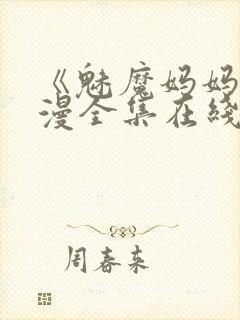 《魅魔妈妈
漫全集在线
周春来